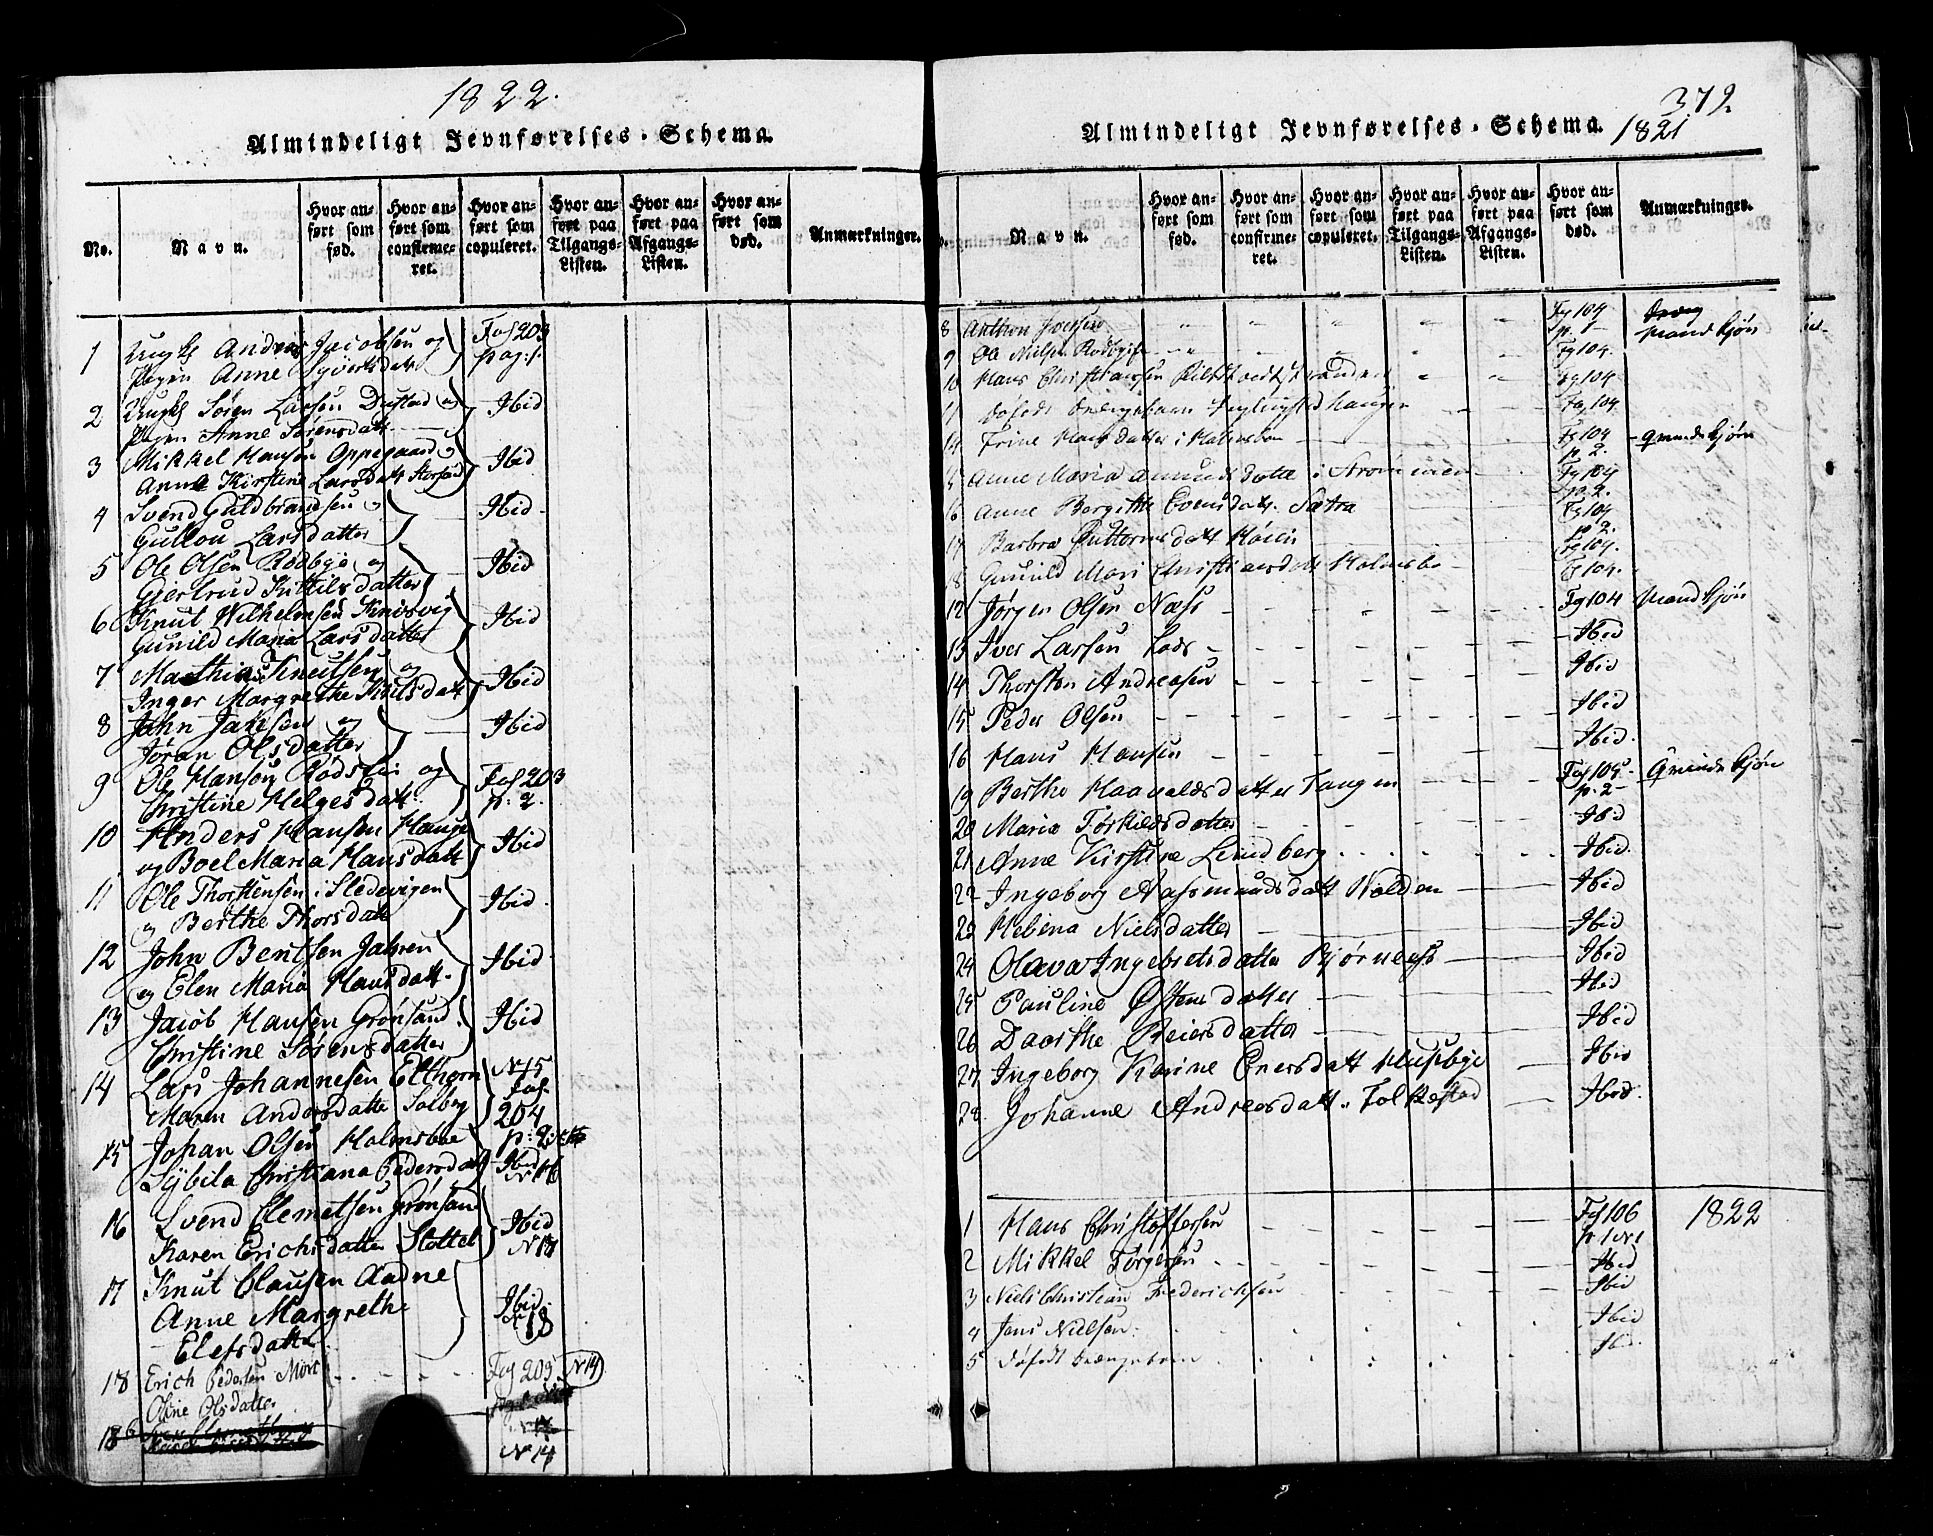 1822.
Almindeligt Jevnførelses-Schema.
No.
Navn.
Hvor anført som fød.
Hvor anført som confirmeret.
Hvor anført som copuleret.
Hvor anført paa Tilgangs-Listen.
Hvor anført paa Afgangs-Listen.
Hvor anført som død.
Anmærkninger.
1 Ungk. Andreas Jacobsen og Fol 203
Pigen Anne Syversdatt pag: 1.
2 Ungk. Søren Larsen og Ibid
Pigen Anne Sørensdatt
3 Mikkel Hansen Oppegaard og Ibid
Anna Kirstine Larsdatt
4 Svend Guldbrandsen og Ibid
Larsdatter
5 Ole Olsen Rødbye og Ibid
Giertrud Kittilsdatter
6 Knut Wilhelmsen Knivsvig Ibid
Gunild Maria Larsdatter
7 Mathias Knutsen og Ibid
Inger Margrethe Knutsdatt
8 John og Ibid
Jøran Olsdatter
9 Ole Hansen og Fol 203
Christine Helgesdatt. p: 2.
10 Anders Hansen Hauge Ibid
og Boel Maria Hansdatt
11 Ole Thorstensen i Sledevigen Ibid
og Berthe Thorsdatt
12 John Bentsen Jahren Ibid
og Elen Maria Hansdatt.
13 Jacob Hansen Grønsand Ibid
Christine Sørensdatter
14 Lars Johannesen Elthorn N 15
Maren Andersdatter Solberg Fol 204
15 Johan Olsen Holmsboe p: 2
Sybila Christiana Pedersdatt Ibid N 16
16 Svend Clemetsen Grønsand Ibid
Karen Erichsdatter Slottet N 17
17 Knut Clausen Aadne
Anne Margrethe Ibid 18
Elefsdatter
18 Erich Pedersen Fol 205 N 14
Oline Olsdatter
N 14
379
Almindeligt Jevnførelses-Schema. 1821
Navn.
Hvor anført som fød.
Hvor anført som confirmeret.
Hvor anført som copuleret.
Hvor anført paa Tilgangs-Listen.
Hvor anført paa Afgangs-Listen.
Hvor anført som død.
Anmærkninger.
8 Anthon Iversen Fg 104 p. 1 Mandkjøn
9 Ole Nilsen Fg 104.
10 Hans Christiansen Fg 104
11 Døfødt Fg 104
14 Trine Hansdatter i Holmsboe Fg 104 p. 2. Qvindekjøn
15 Anne Maria Amundsdatter i Strømmen Fg 104 p. 2.
16 Anne Bergithe Evensdatt. Sætra Fg 104 p 2.
17 Barbra Guttormsdatt Fg 104.
18 Gunild Mari Christiansdatt Holmsbo Fg 104.
12 Jørgen Olsen Næss Fg 104 Mandkjøn
13 Iver Larsen Ibid
14 Thorsten Andreasen Ibid
15 Peder Olsen Ibid
16 Hans Hansen Ibid.
19 Berthe Haavaldsdatter Tangen Fol 105 p. 2 Qvindekjøn
20 Maria Torkildsdatter Ibid
21 Anne Kirstine Lindberg Ibid.
22 Ingeborg Aassmundsdatt Wolden Ibid
23 Helena Nielsdatter Ibid
24 Olava Ingebretsdatter Bjørnness Ibid
25 Pauline Østensdatter Ibid
26 Daarthe Reiersdatter Ibid
27 Ingeborg Karine Enersdatt Husebye Ibid
28. Johanne Andreasdatt. Folkestad Ibid.
1 Hans Christoffersen Fol 106 p 1 N 1 1822
2 Mikkel Torgersen Ibid
3 Niels Christian Frederichsen Ibid
4 Jens Nielsen Ibid
5 Døfødt Drengebarn Ib.